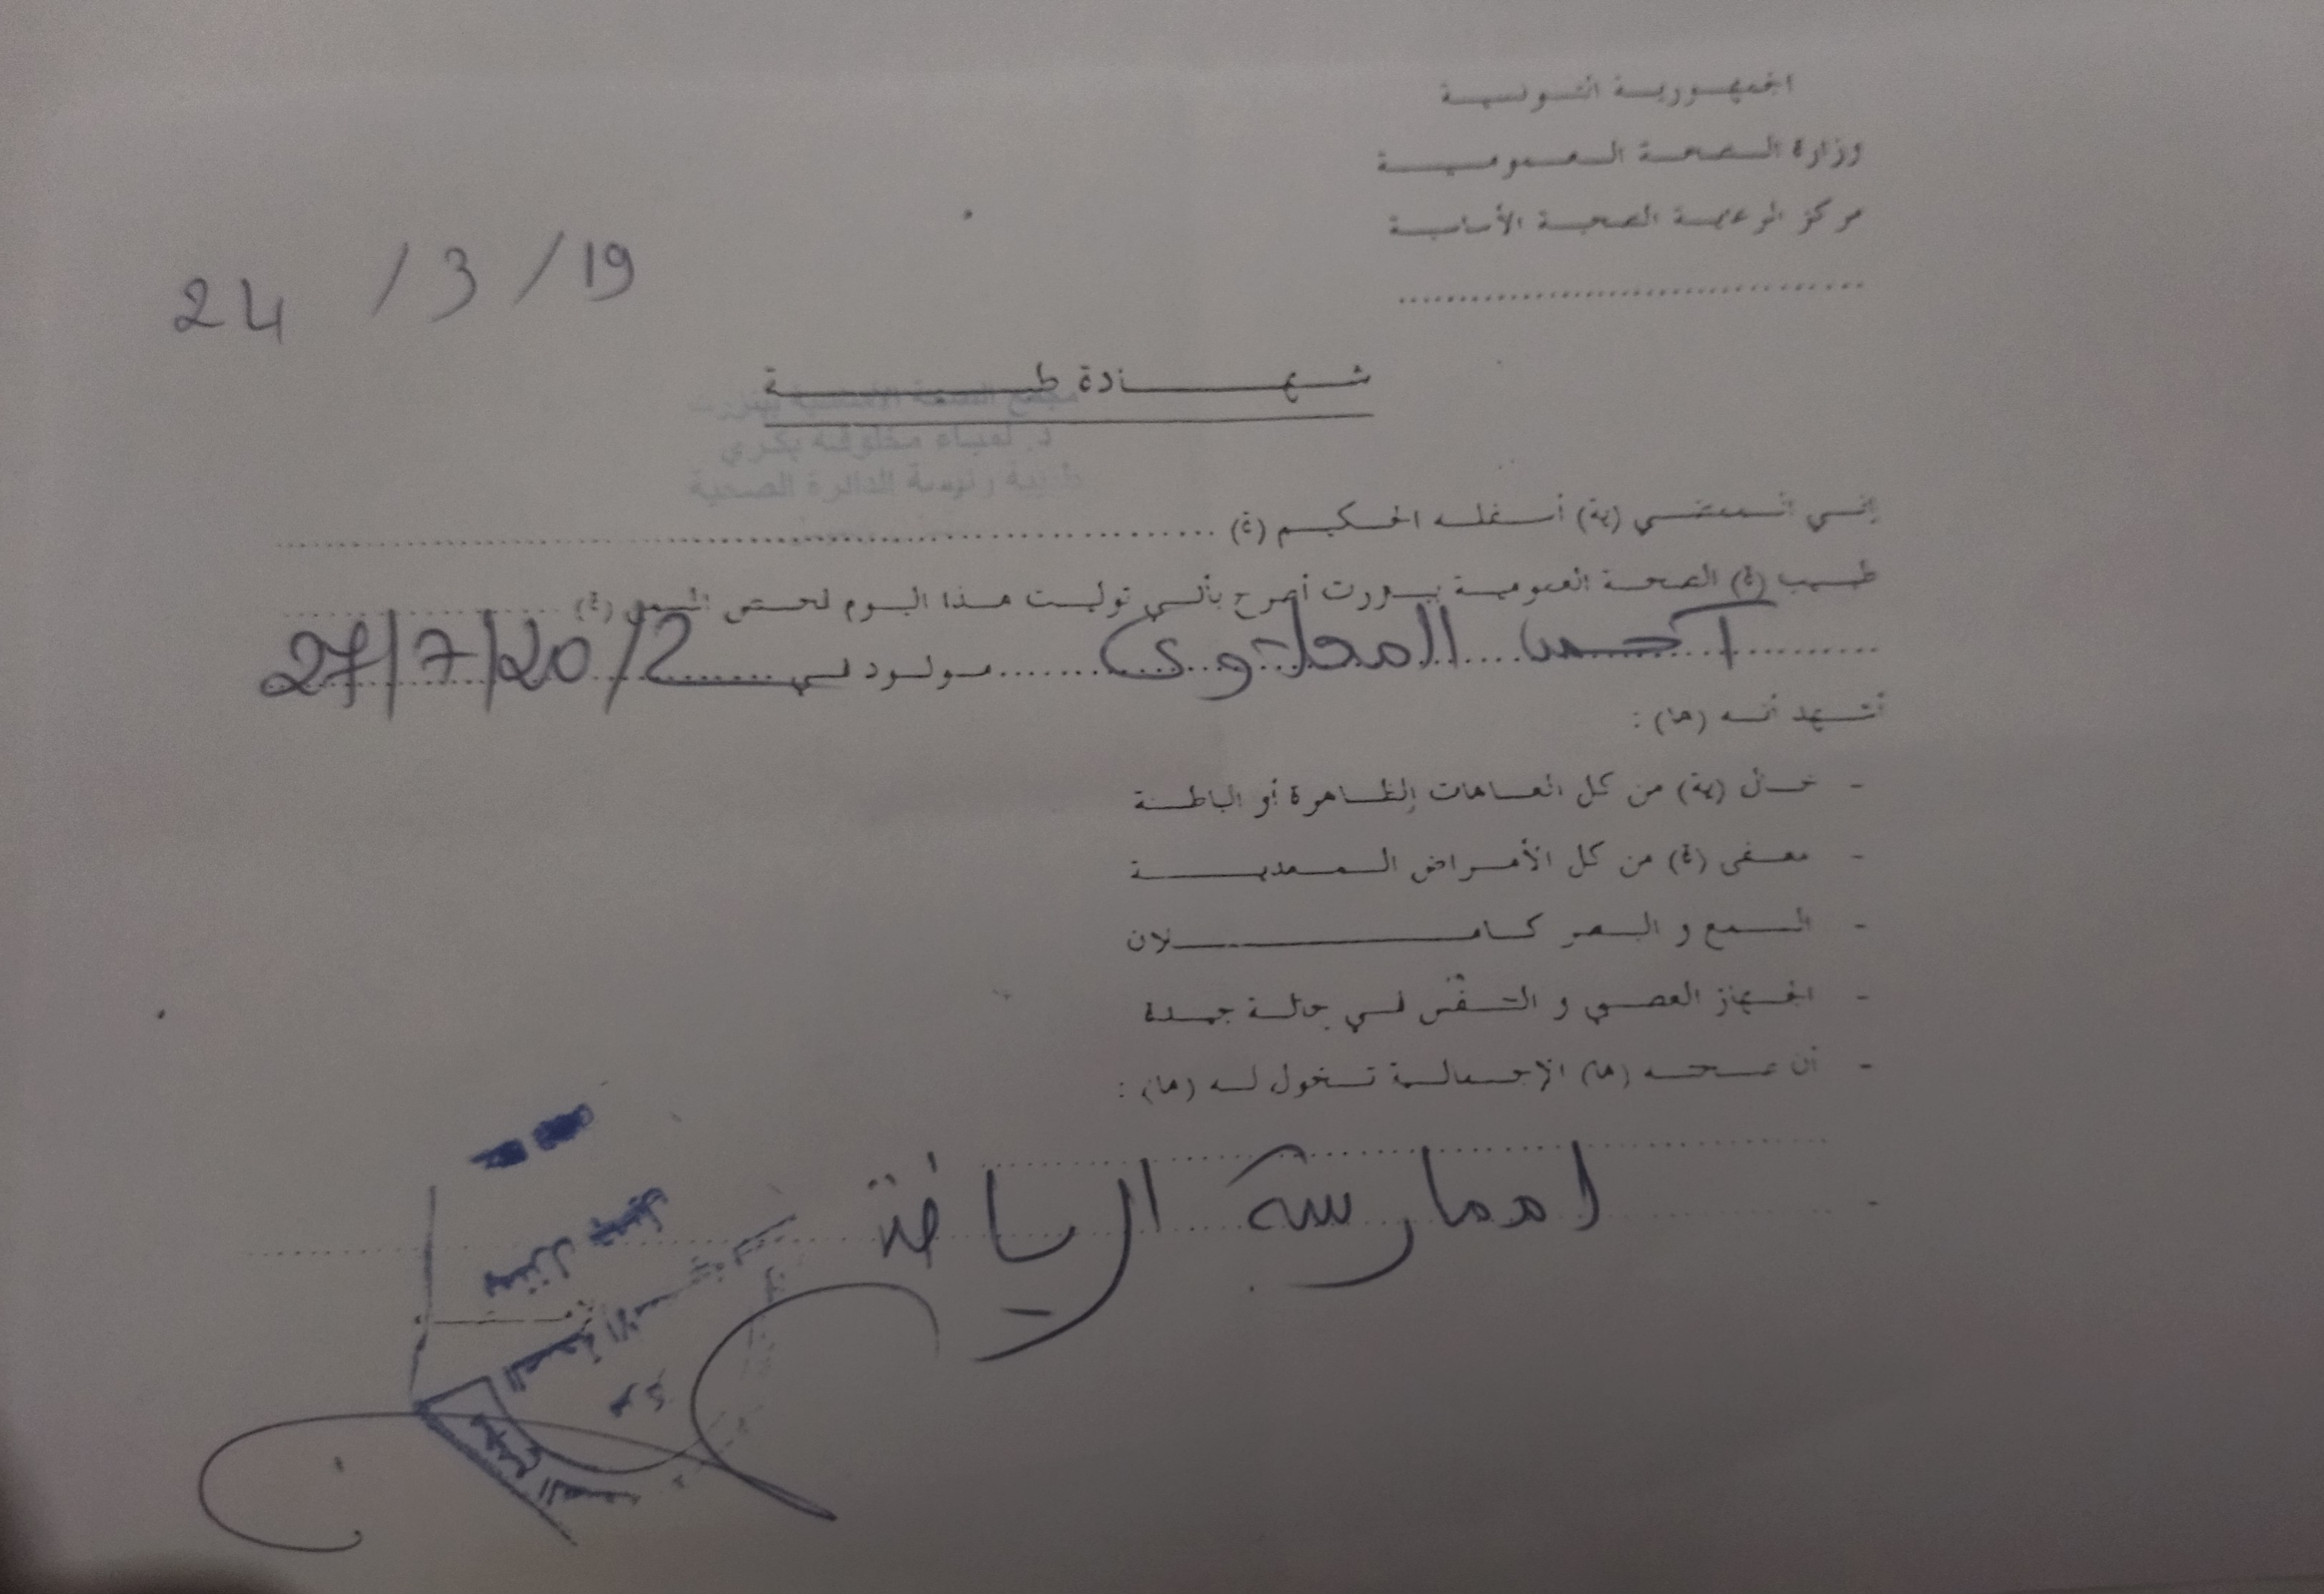 الجمهورية التونسية
وزارة الصحة العمومية
مركز الرعاية الصحية الأساسية
24 / 3 / 19
شهادة طبية
مجمع الصحة الأساسية ببنزرت
د. لمياء مخلوف بكري
طبيبة رئيسة الدائرة الصحية
إني الممضي (ية) أسفله الحكيم (ة)
طبيب (ة) الصحة العمومية ببنزرت أصرح بأنني توليت هذا اليوم فحص المسمى (ة)
مولود في 27/7/2012
أشهد أنه (ها) :
- خال (ية) من كل العاهات الظاهرة أو الباطنة
- معفى (ة) من كل الأمراض المعدية
- السمع و البصر كاملان
- الجهاز العصبي و التنفس في حالة جيدة
- أن صحته (ها) الإجمالية تخول له (ها) :
- لممارسة الرياضة